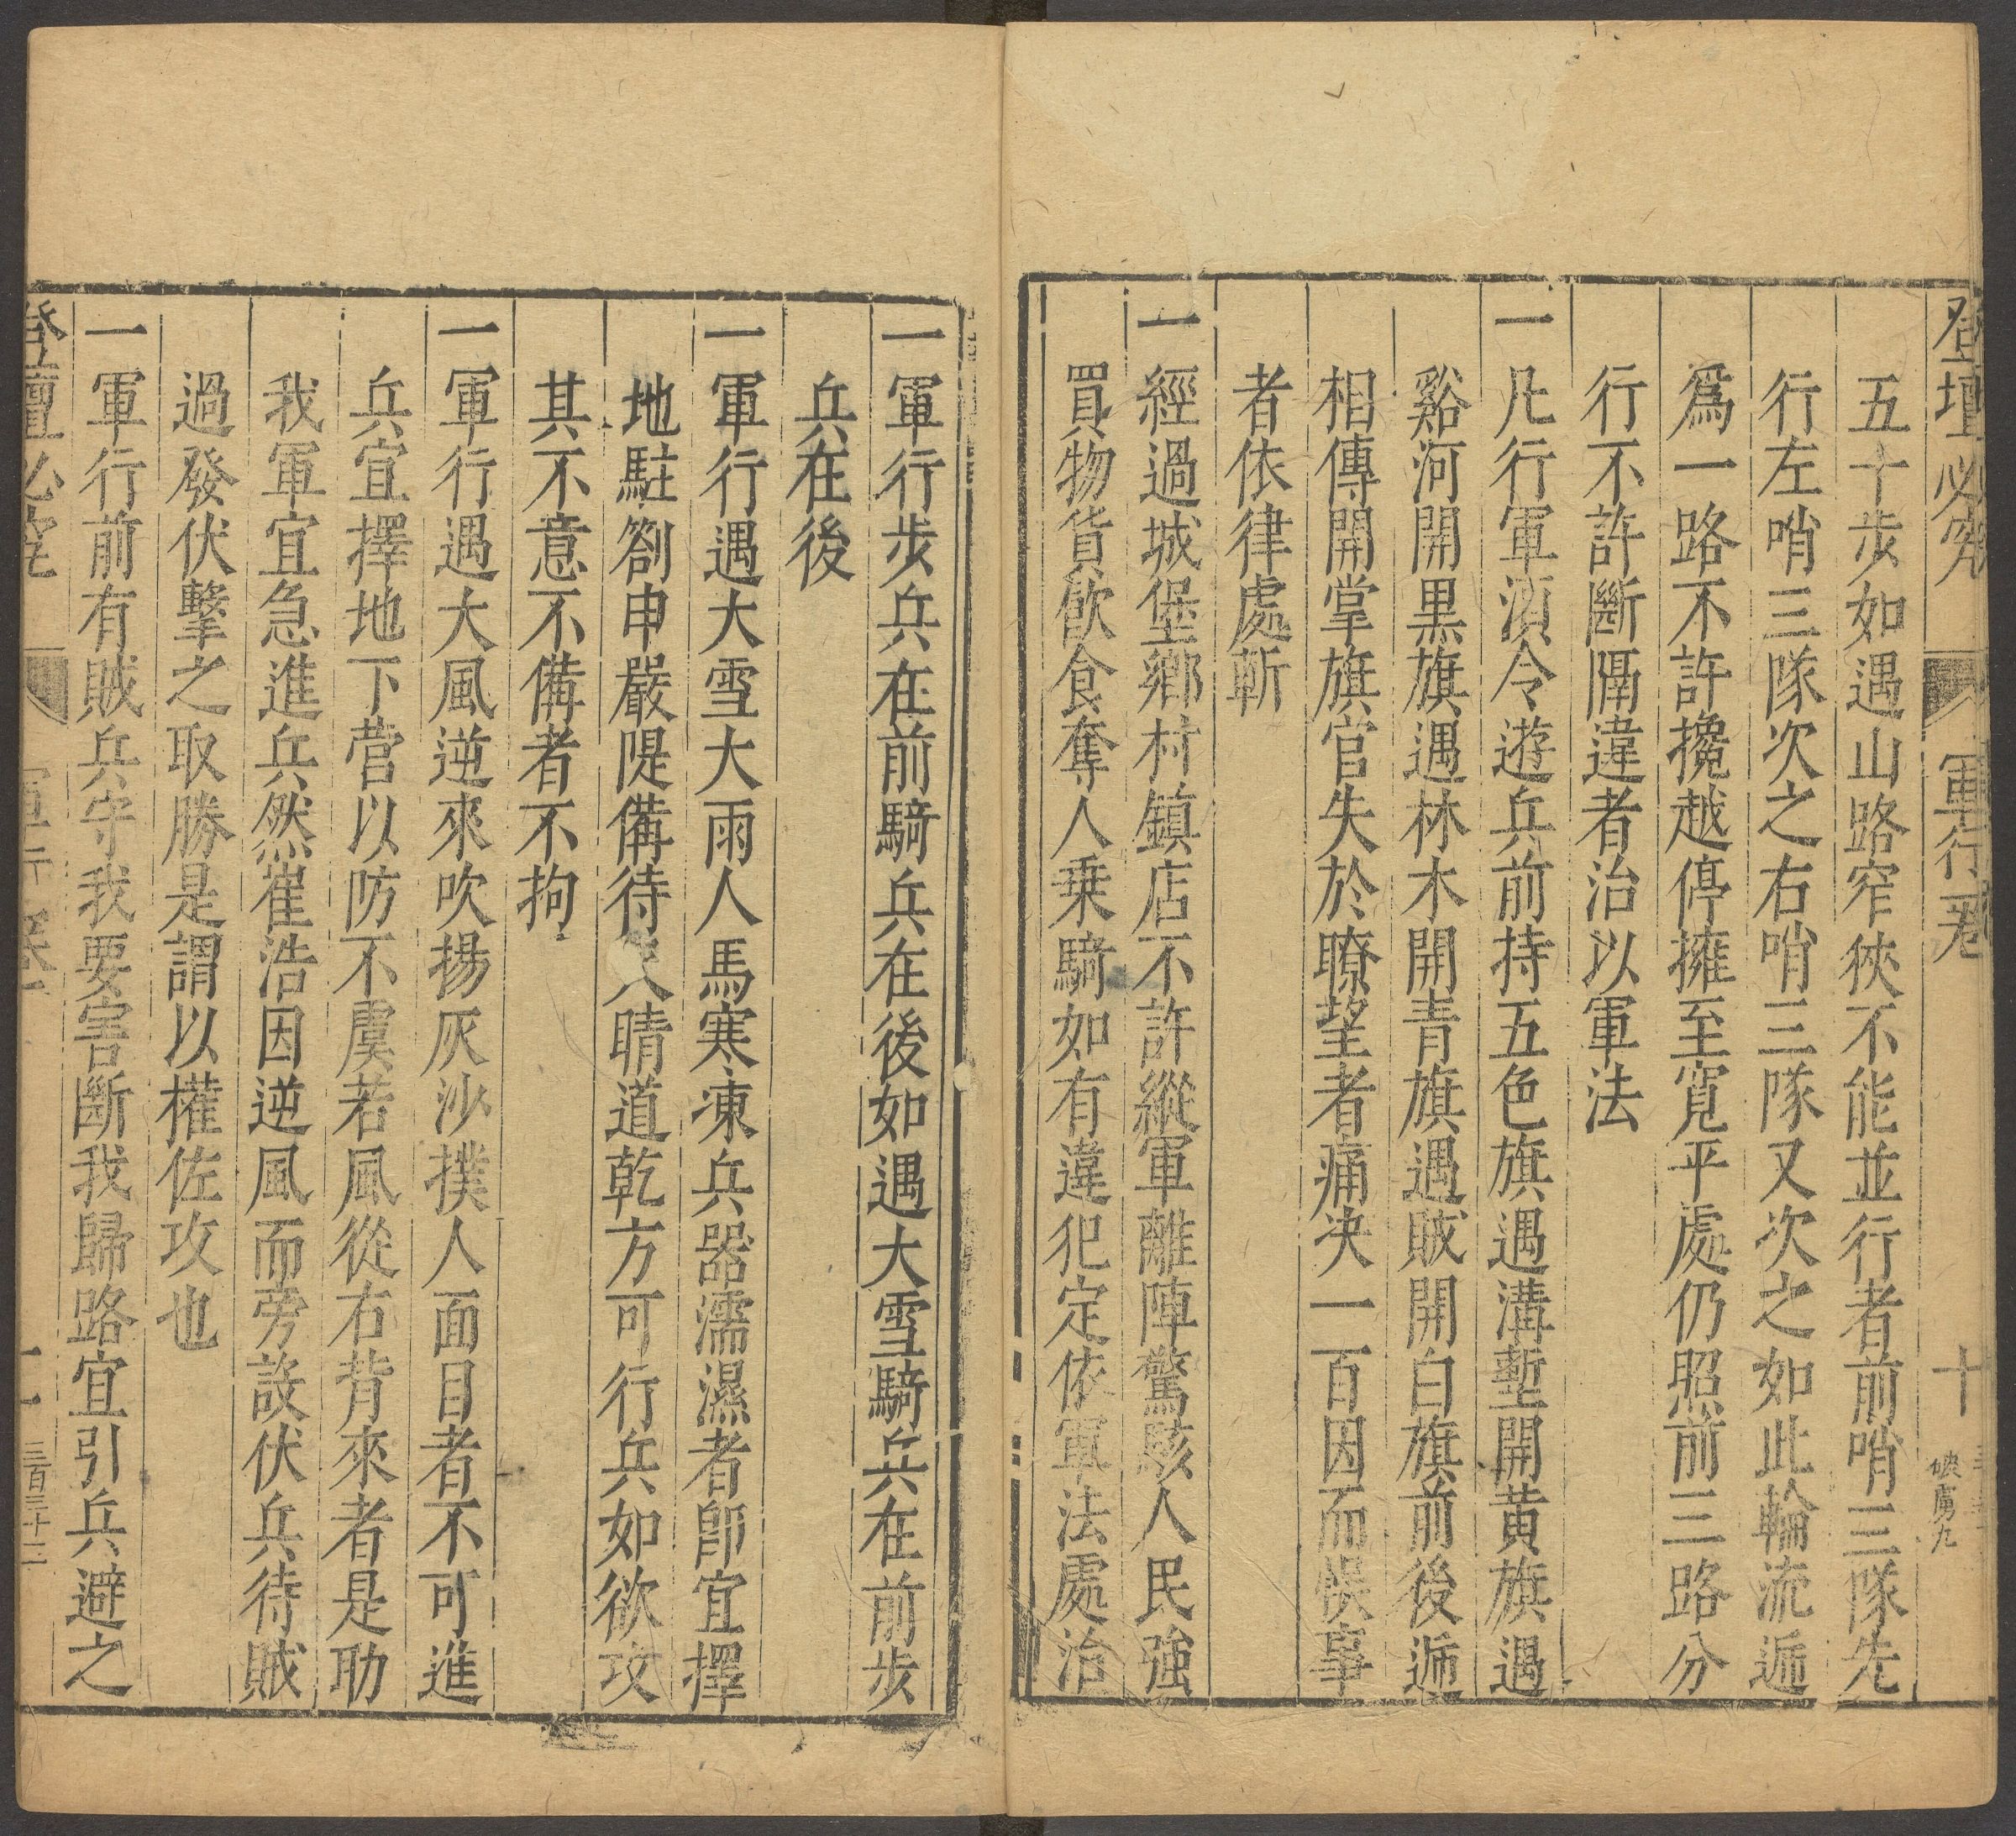 登壇必究 軍行卷 十
五十步如遇山路窄狹不能並行者前哨三隊先
行左哨三隊次之右哨三隊又次之如此輪流逓
爲一路不許攙越停擁至寬平處仍照前三路分
行不許斷隔違者治以軍法
一凡行軍湏令遊兵前持五色旗遇溝塹開黄旗遇
谿河開黒旗遇林木開青旗遇賊開白旗前後逓
相傳開掌旗官失於瞭望者痛决一百因而悞事
者依律處斬
一經過城堡鄉村鎮店不許縱軍離陣驚駭人民強
買物貨飲食奪人乗騎如有違犯定依軍法處治
一軍行步兵在前騎兵在後如遇大雪騎兵在前步
兵在後
一軍行遇大雪大雨人馬寒凍兵器濡濕者卽宜擇
地駐劄申嚴隄備待天晴道乾方可行兵如欲攻
其不意不備者不拘
一軍行遇大風逆來吹揚灰沙撲人面目者不可進
兵宜擇地下營以防不虞若風從右背來者是助
我軍宜急進兵然崔浩因逆風而旁設伏兵待賊
過發伏擊之取勝是謂以權佐攻也
一軍行前有賊兵守我要害斷我歸路宜引兵避之
登壇必究 軍行 三百三十二